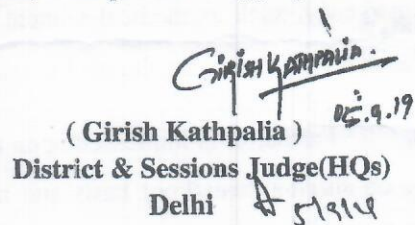 Girish Kathpalia.
05.9.19
( Girish Kathpalia )
District & Sessions Judge(HQs)
Delhi